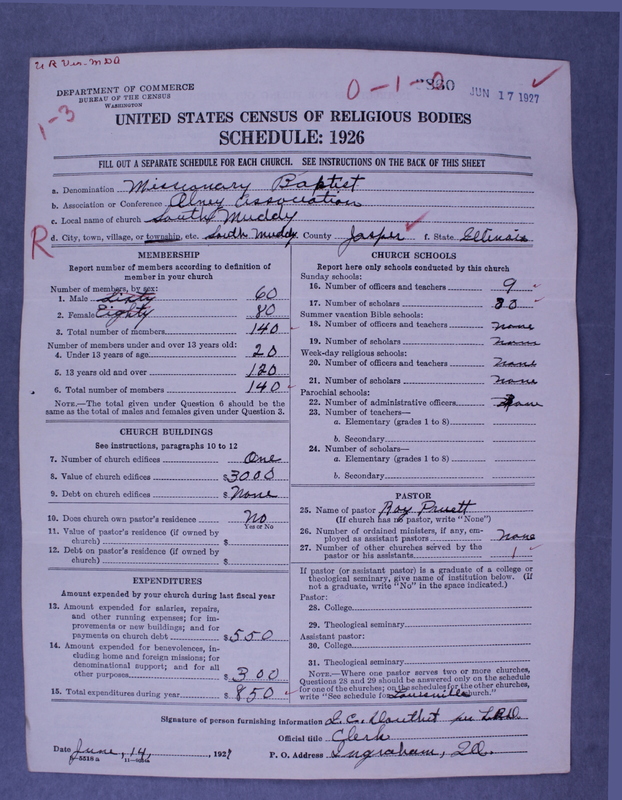 DEPARTMENT OF COMMERCE
BUREAU OF THE CENSUS
WASHINGTON
0-1-0
JUN 17 1927
1-3
UNITED STATES CENSUS OF RELIGIOUS BODIES
SCHEDULE: 1926
FILL OUT A SEPARATE SCHEDULE FOR EACH CHURCH. SEE INSTRUCTIONS ON THE BACK OF THIS SHEET
a. Denomination Missionary Baptist
b. Association or Conference Olney Association
c. Local name of church South Muddy
R
d. City, town, village, or township, etc. South Muddy County Jasper f. State Illinois
MEMBERSHIP
Report number of members according to definition of
member in your church
Number of members, by sex:
1. Male Sixty 60
2. Female Eighty 80
3. Total number of members 140
Number of members under and over 13 years old:
4. Under 13 years of age 20
5. 13 years old and over 120
6. Total number of members 140
NOTE.—The total given under Question 6 should be the
same as the total of males and females given under Question 3.
CHURCH BUILDINGS
See instructions, paragraphs 10 to 12
7. Number of church edifices One
8. Value of church edifices $3000
9. Debt on church edifices $None
10. Does church own pastor's residence No
Yes or No
11. Value of pastor's residence (if owned by
church) $
12. Debt on pastor's residence (if owned by
church) $
EXPENDITURES
Amount expended by your church during last fiscal year
13. Amount expended for salaries, repairs,
and other running expenses; for im-
provements or new buildings; and for
payments on church debt $550
14. Amount expended for benevolences, in-
cluding home and foreign missions; for
denominational support; and for all
other purposes $300
15. Total expenditures during year $850
CHURCH SCHOOLS
Report here only schools conducted by this church
Sunday schools:
16. Number of officers and teachers 9
17. Number of scholars 80
Summer vacation Bible schools:
18. Number of officers and teachers none
19. Number of scholars none
Week-day religious schools:
20. Number of officers and teachers none
21. Number of scholars none
Parochial schools:
22. Number of administrative officers none
23. Number of teachers—
a. Elementary (grades 1 to 8)
b. Secondary
24. Number of scholars—
a. Elementary (grades 1 to 8)
b. Secondary
PASTOR
25. Name of pastor Roy Pruett
(If church has no pastor, write "None")
26. Number of ordained ministers, if any, em-
ployed as assistant pastors none
27. Number of other churches served by the
pastor or his assistants 1
If pastor (or assistant pastor) is a graduate of a college or
theological seminary, give name of institution below. (If
not a graduate, write "No" in the space indicated.)
Pastor:
28. College
29. Theological seminary
Assistant pastor:
30. College
31. Theological seminary
NOTE.—Where one pastor serves two or more churches,
Questions 28 and 29 should be answered only on the schedule
for one of the churches; on the schedules for the other churches,
write "See schedule for Louisville church."
Signature of person furnishing information
Official title Clerk
Date June, 14, 1927 P. O. Address Ingraham, Ill.